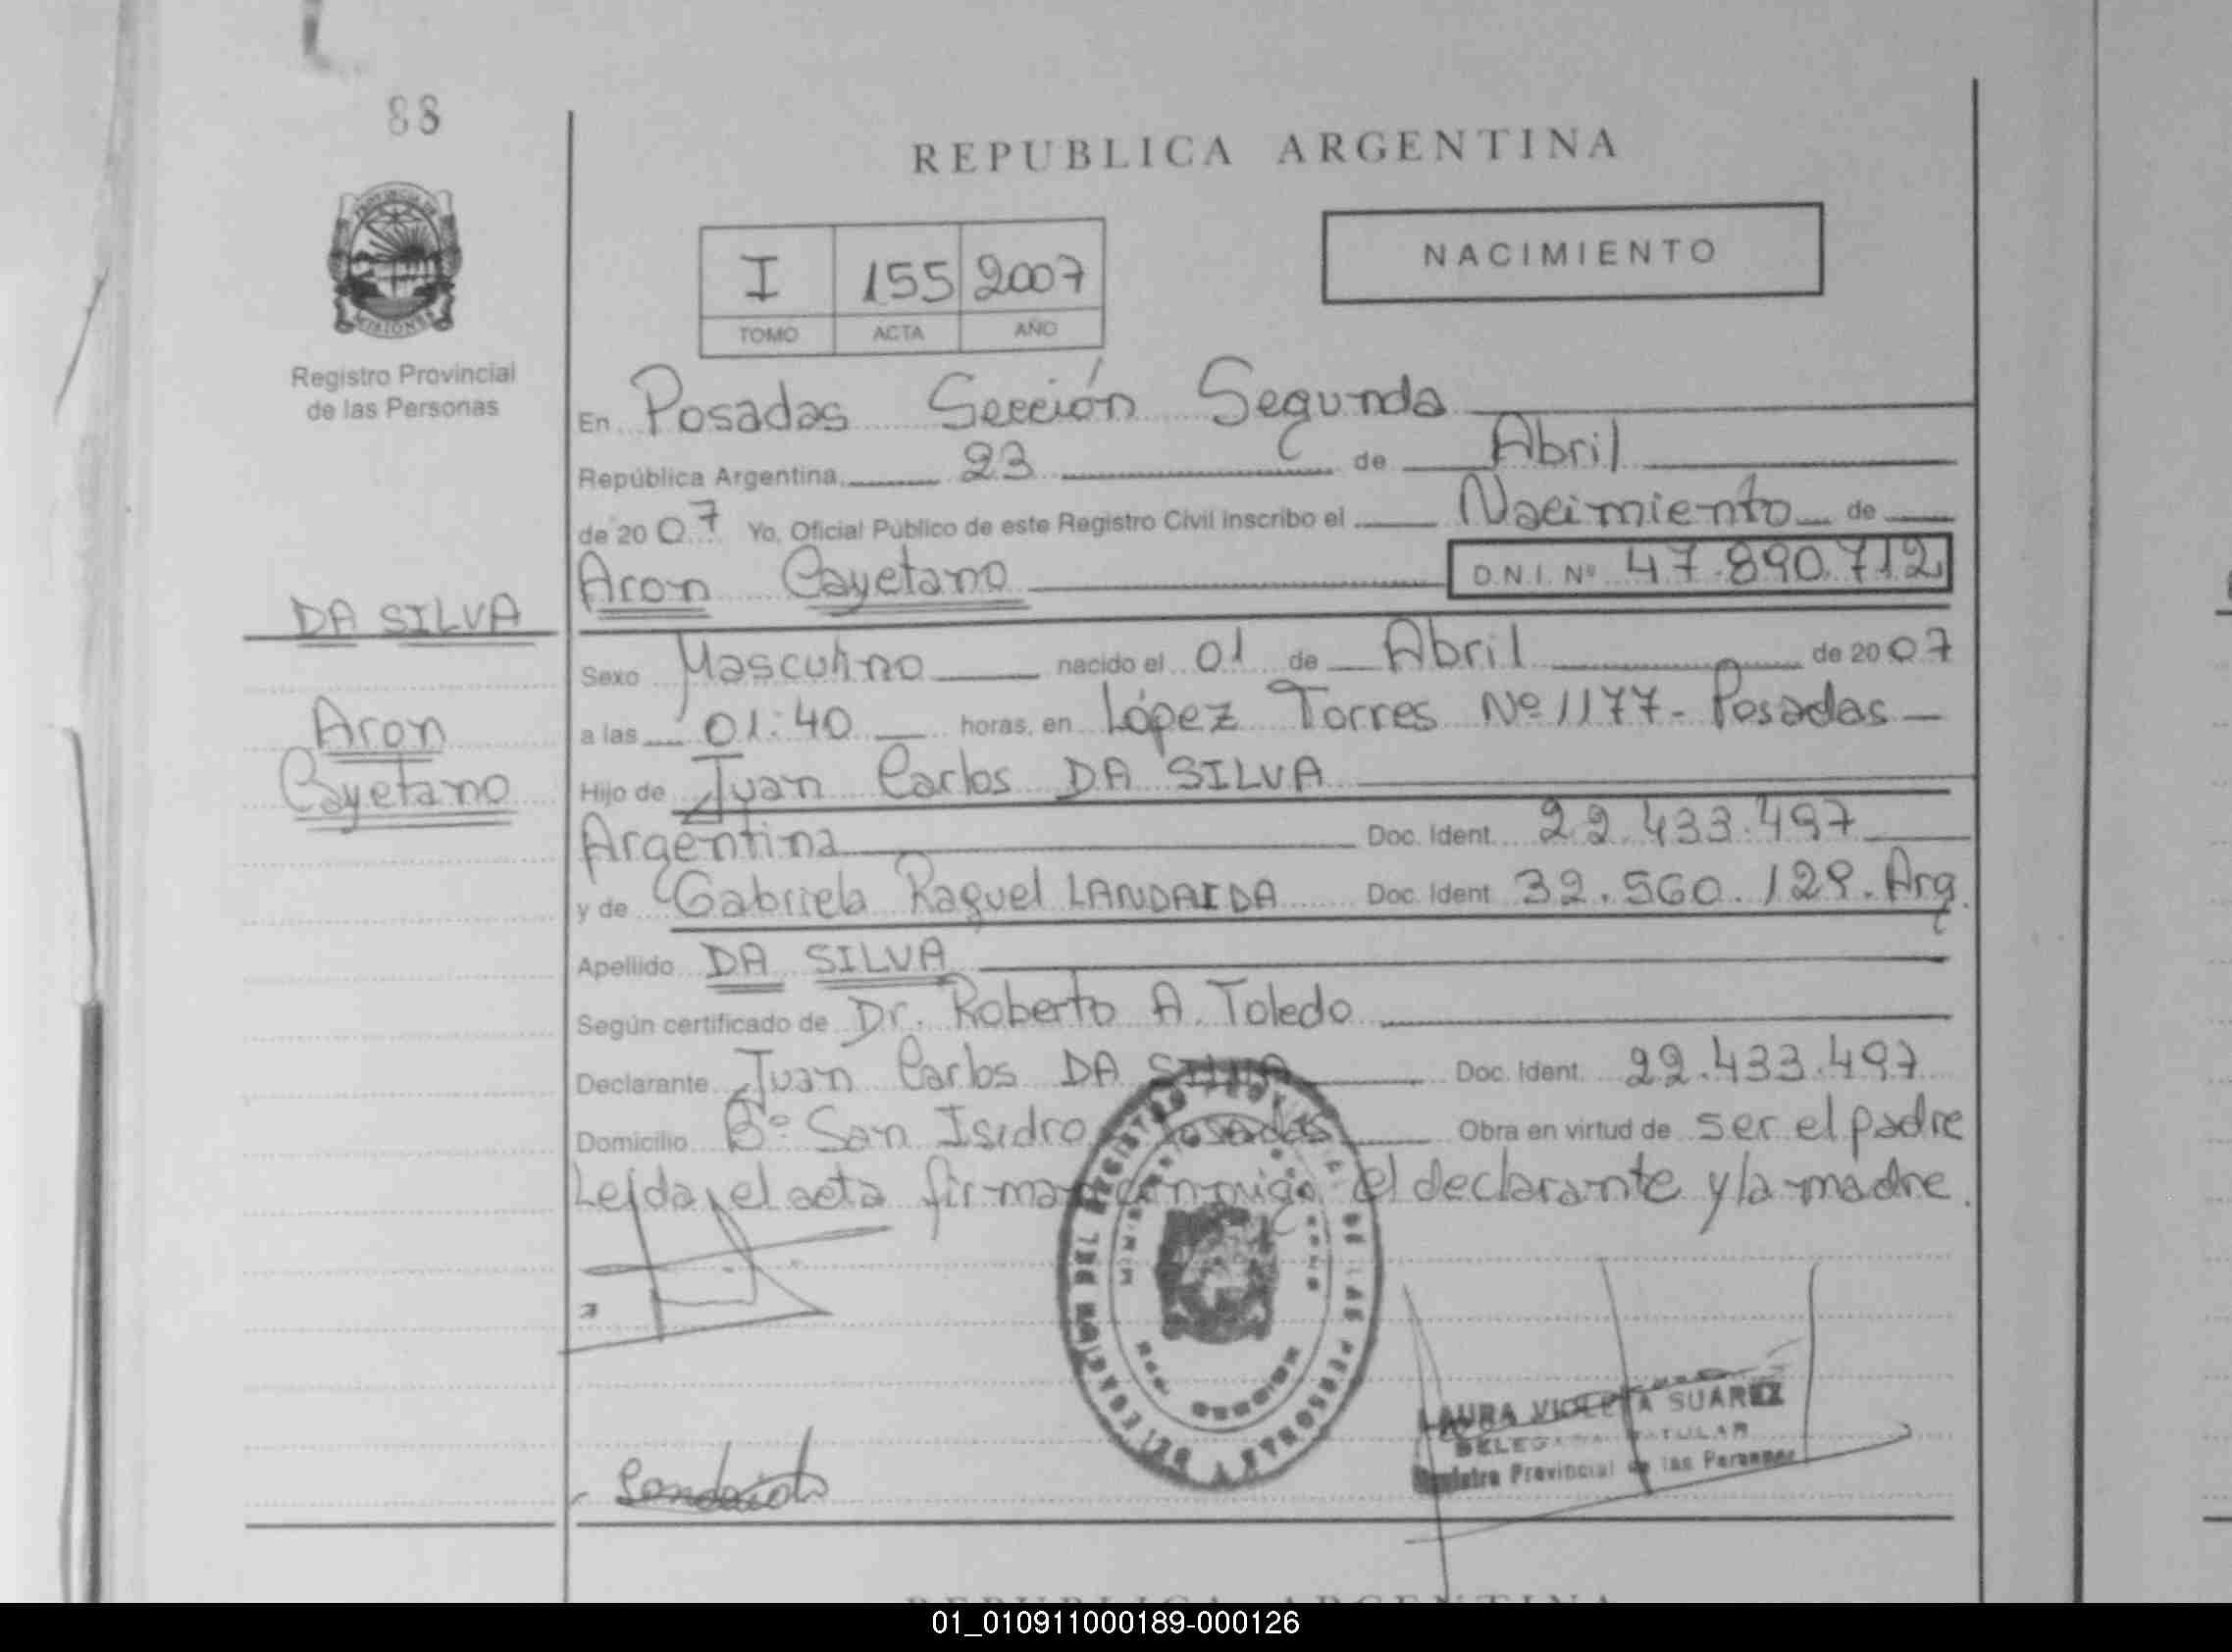 88
REPUBLICA ARGENTINA
PROVINCIA DE
MISIONES
NACIMIENTO
I 155 2007
TOMO ACTA AÑO
Registro Provincial
de las Personas
En Posadas Sección Segunda
República Argentina, 23 de Abril
de 2007 Yo, Oficial Público de este Registro Civil inscribo el Nacimiento de
Aron Cayetano D.N.I. Nº 47.890.712
DA SILVA
Sexo Masculino nacido el 01 de Abril de 2007
Aron
a las 01:40 horas, en López Torres Nº 1177- Posadas
Cayetano
Hijo de Juan Carlos DA SILVA
Argentina Doc. Ident. 22.433.497
y de Gabriela Raquel LANDAIDA Doc. Ident. 32.560.129. Arg.
Apellido DA SILVA
Según certificado de Dr. Roberto A. Toledo
Declarante Juan Carlos DA SILVA Doc. Ident. 22.433.497
Domicilio Bº San Isidro Posadas Obra en virtud de ser el padre
Leída el acta firman conmigo el declarante y la madre.
LAURA VIOLETA SUAREZ
DELEGADA TITULAR
Registro Provincial de las Personas
REPUBLICA ARGENTINA
01_010911000189-000126